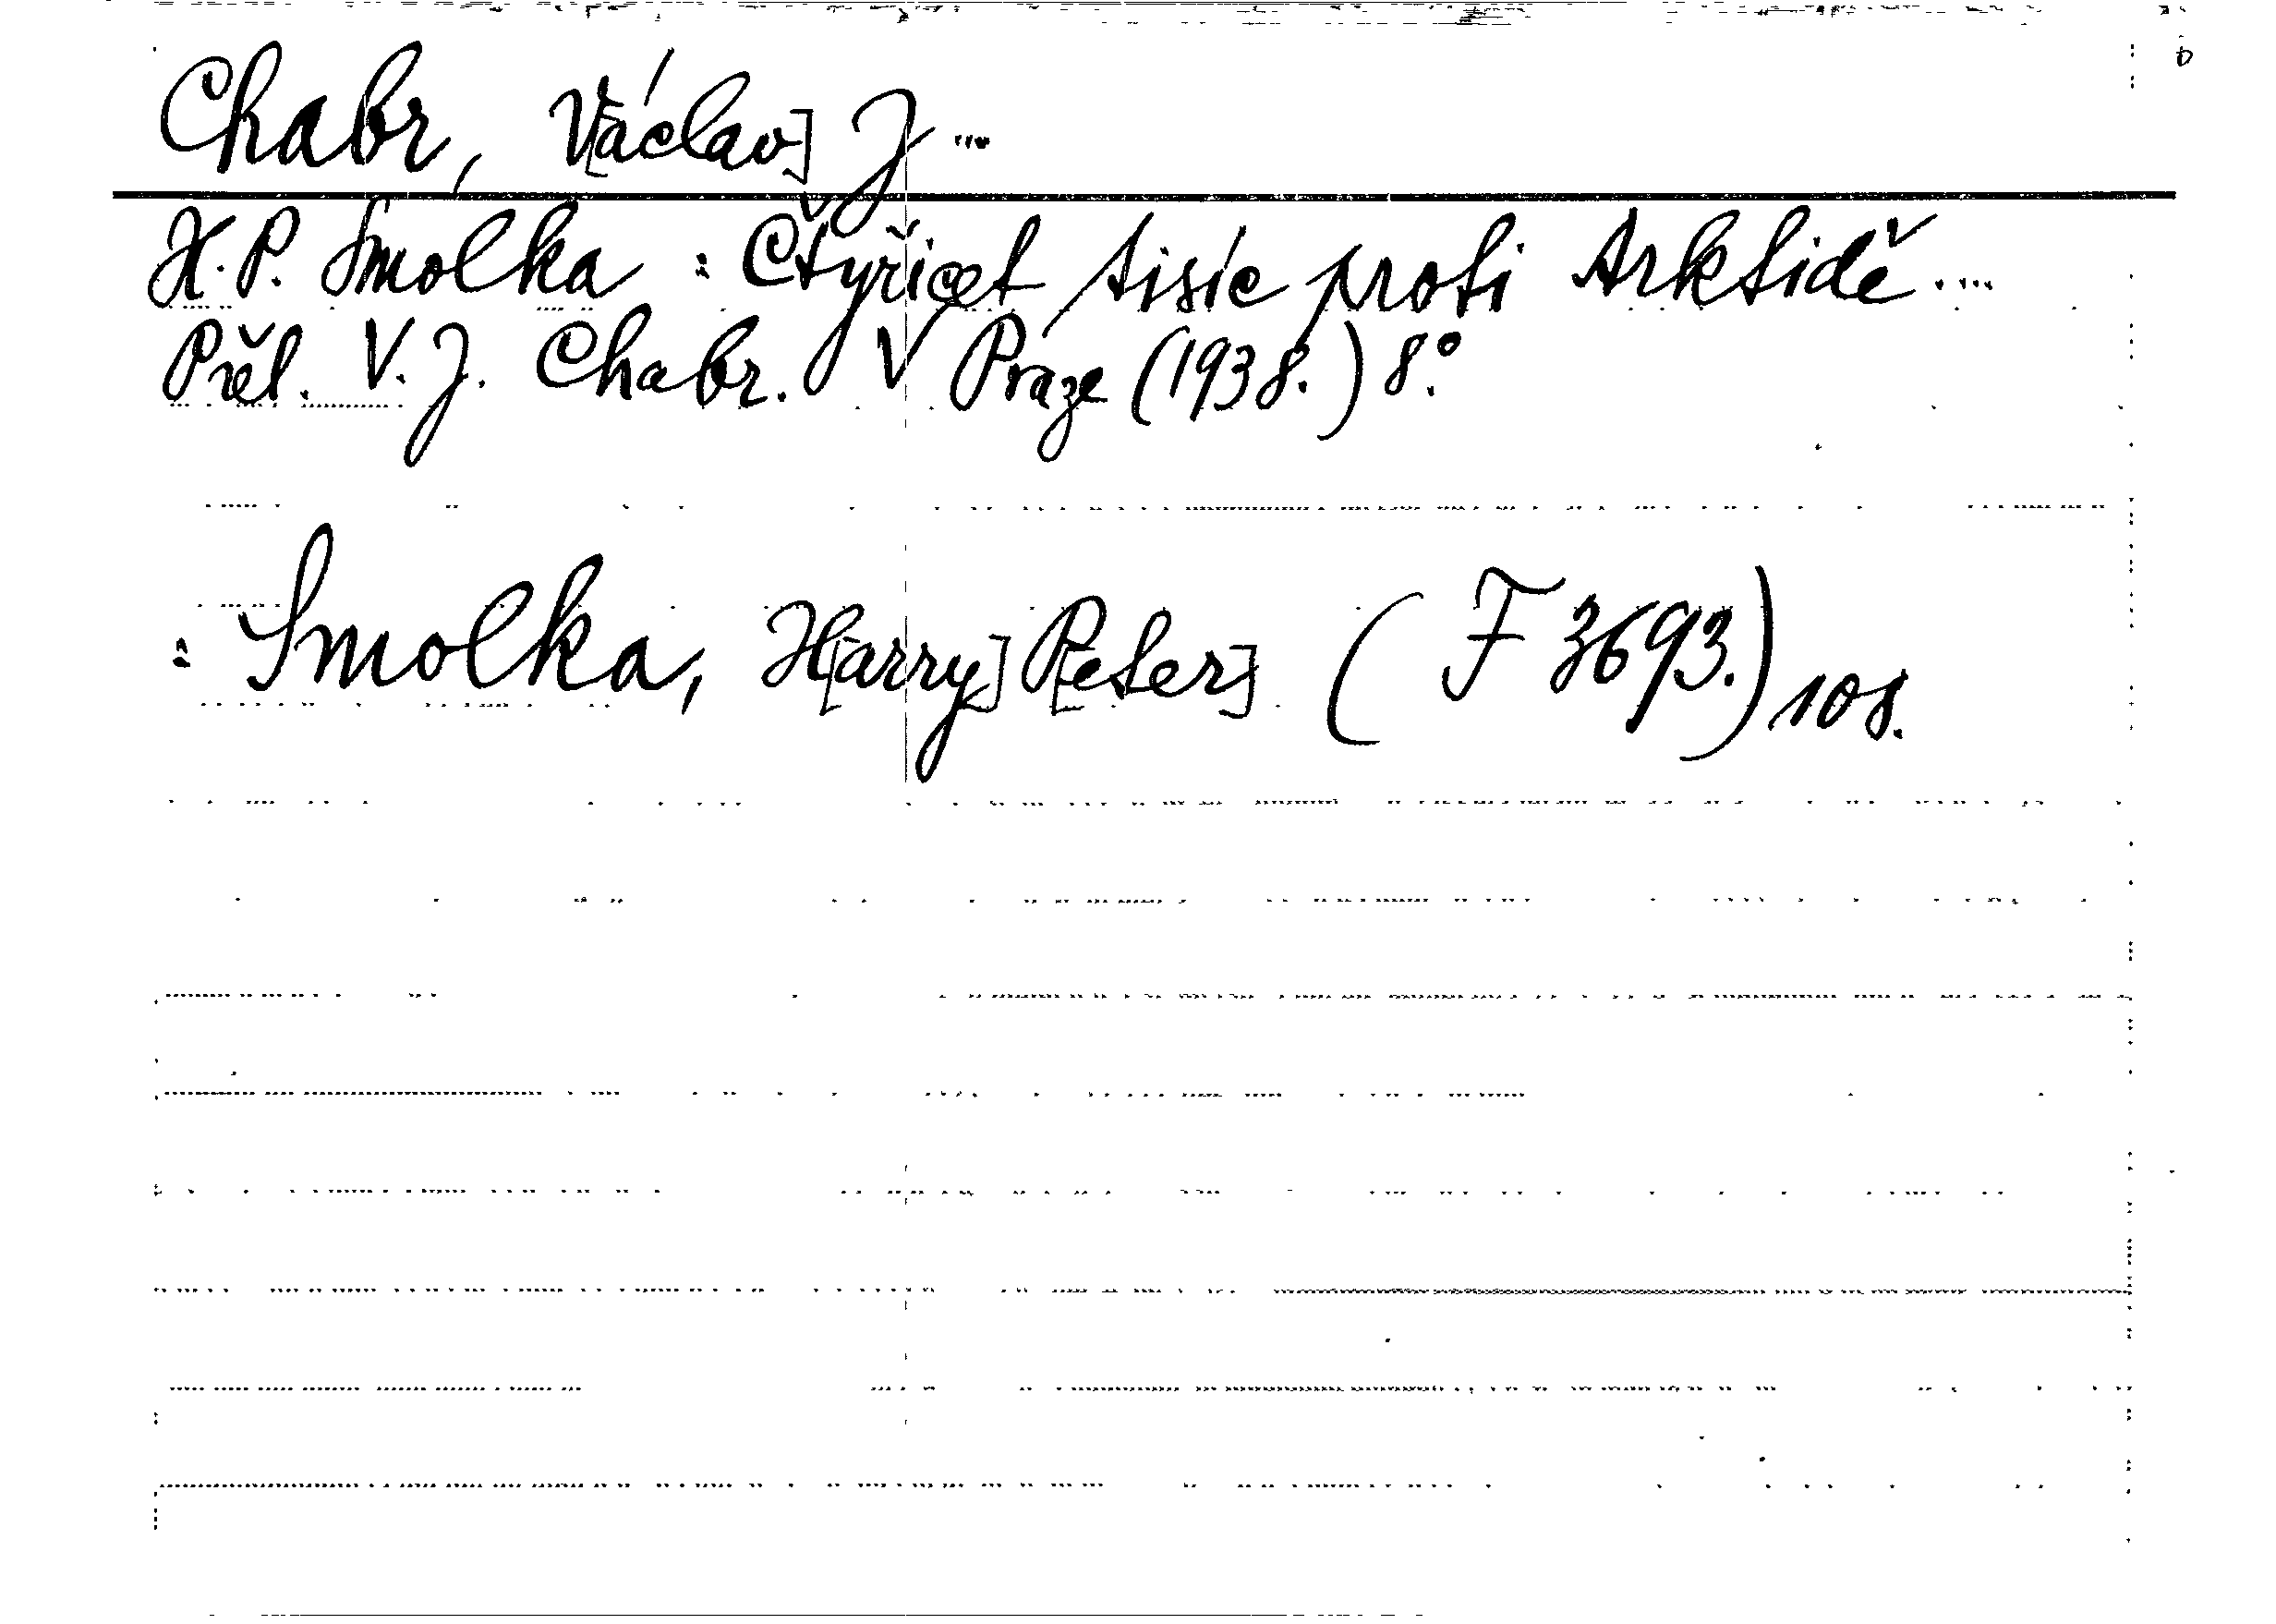 Chabr, V[áclav] J ...
H. P. Smolka : Čtyřicet tisíc proti Arktidě ....
Přel. V. J. Chabr. V Praze (1938.) 8.°
: Smolka, H[arry] P[eter] (F 3693.) 108.